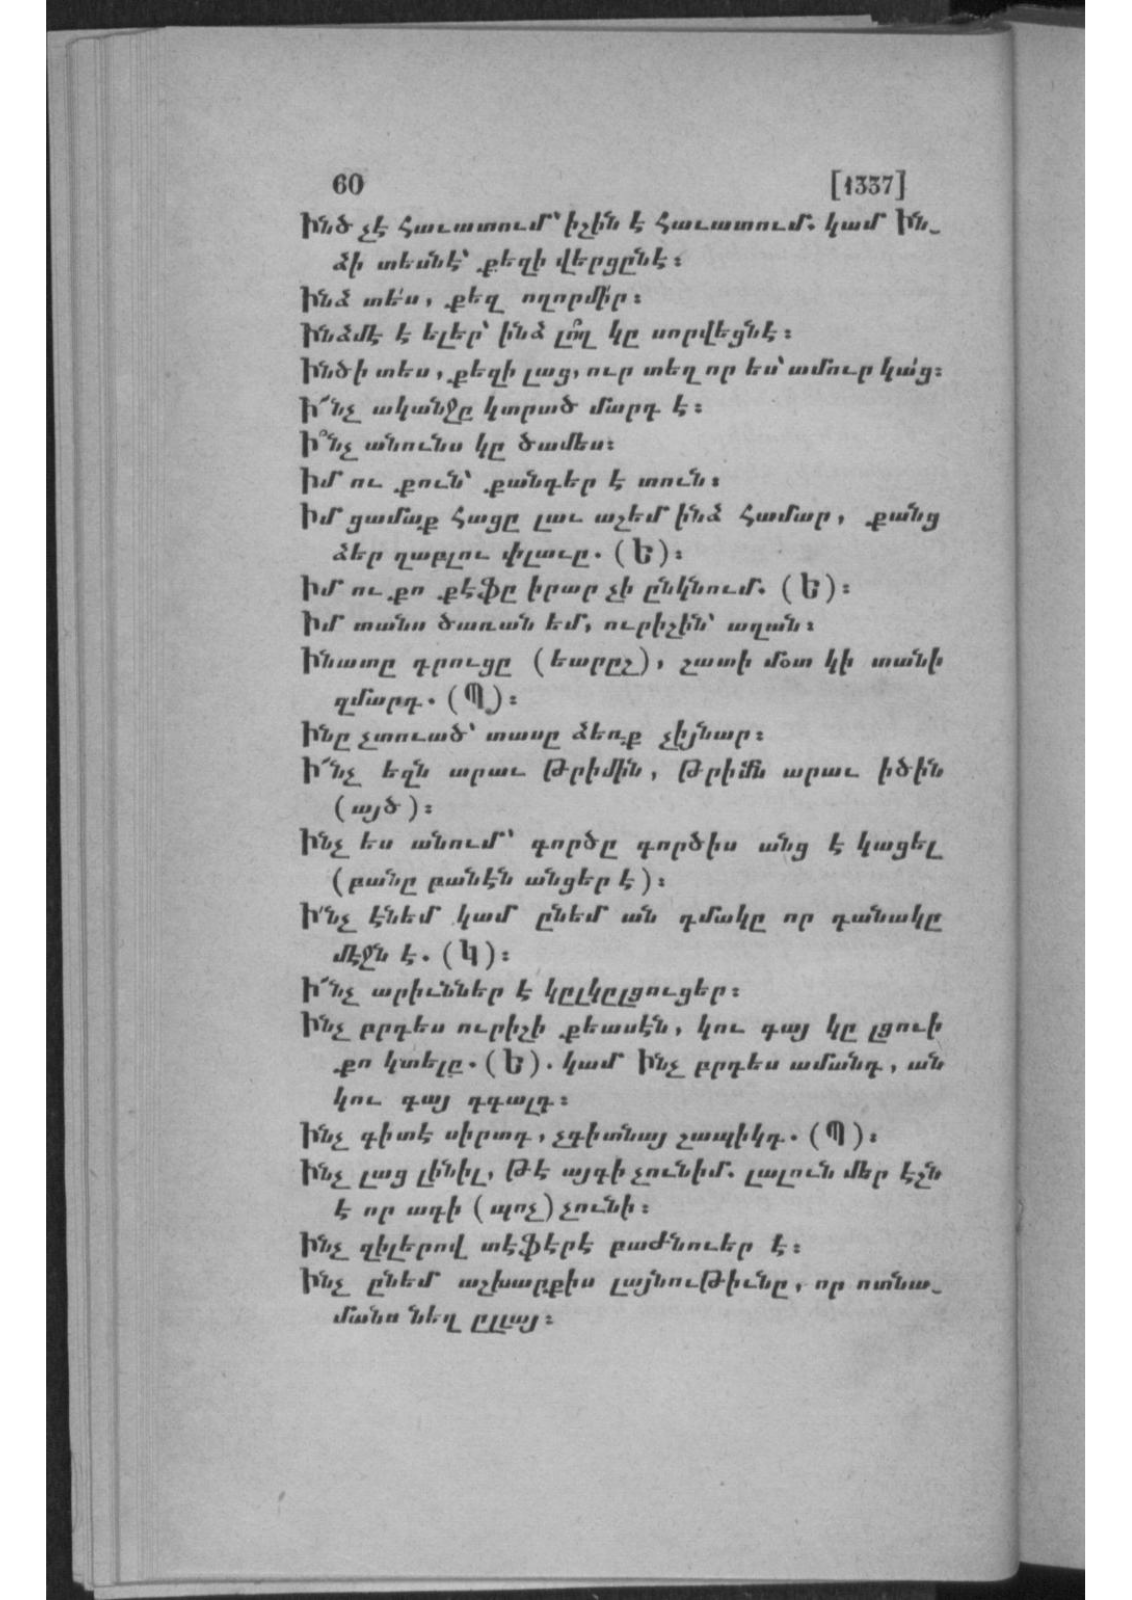 60 [1337]
Ինծ չէ հաւատում՝ իչին է հաւատում. կամ Ին֊
ձի տեսնէ՝ քեզի վերցընէ։
Ինձ տե՛ս, քեզ ողորմի՛ր։
Ինձմէ է ելեր՝ ինձ լո՞ղ կը սորվեցնէ։
Ինծի տես, քեզի լաց, ուր տեղ որ ես՝ ամուր կա՛ց։
Ի՜նչ ականջը կտրած մարդ է։
Ի՞նչ անունս կը ծամես։
Իմ ու քուն՝ քանդեր է տուն։
Իմ ցամաք հացը լաւ աչեմ ինձ համար, քանց
ձեր ղաբլու փլաւը. (Ե)։
Իմ ու քո քէֆը իրար չի ընկնում. (Ե)։
Իմ տանս ծառան եմ, ուրիչին՝ աղան։
Ինատը գրուցը (եարըշ), շատի մօտ կի տանի
զմարդ. (Պ)։
Ինը չտուած՝ տասը ձեռք չիյնար։
Ի՜նչ եզն արաւ Թրիմին, Թրիմն արաւ իծին
(այծ)։
Ինչ ես անում՝ գործը գործիս անց է կացել
(բանը բանէն անցեր է)։
Ի՛նչ էնեմ կամ ընեմ ան դմակը որ դանակը
մէջն է. (Կ)։
Ի՜նչ արիւններ է կըլկըլցուցեր։
Ինչ բրդես ուրիչի քեասէն, կու գայ կը լցուի
քո կտելը. (Ե). կամ Ինչ բրդես ամանդ, ան
կու գայ դգալդ։
Ինչ գիտէ սիրտդ, չգիտնայ շապիկդ. (Պ)։
Ինչ լաց լինիլ, թէ այգի չունիմ. լալուն մեր էչն
է որ ագի (պոչ) չունի։
Ինչ զիլերով տէֆէրէ բաժնուեր է։
Ինչ ընեմ աշխարքիս լայնութիւնը, որ ոտնա֊
մանս նեղ ըլլայ։